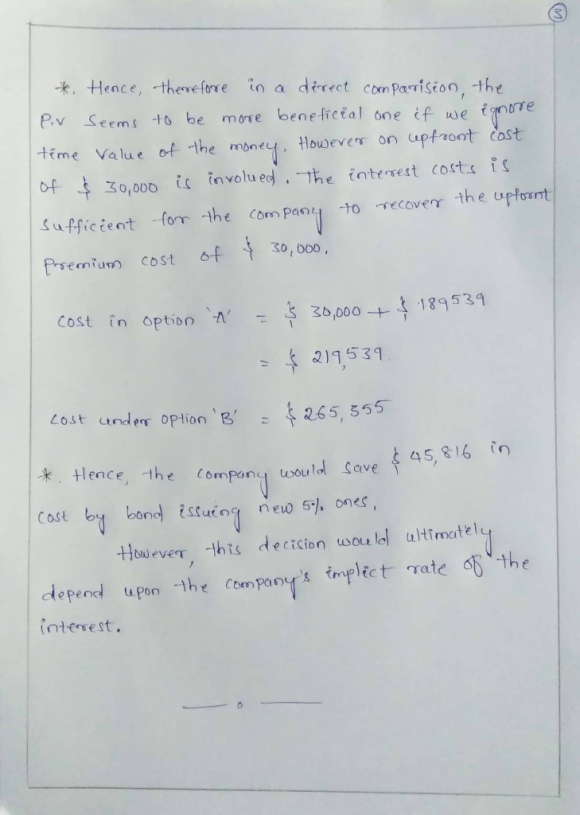 3
*. Hence, therefore in a direct comparision, the
P.V seems to be more beneficial one if we ignore
time value of the money. However on upfront cost
of $ 30,000 is involved. The interest costs is
sufficient for the company to recover the upfornt
premium cost of $ 30,000.
Cost in option 'A' = $ 30,000 + $ 189539
= $ 219,539.
Cost under option 'B' = $ 265,355
*. Hence, the company would save $ 45,816 in
cost by bond issuing new 5% ones,
However, this decision would ultimately
depend upon the company's implict rate of the
interest.